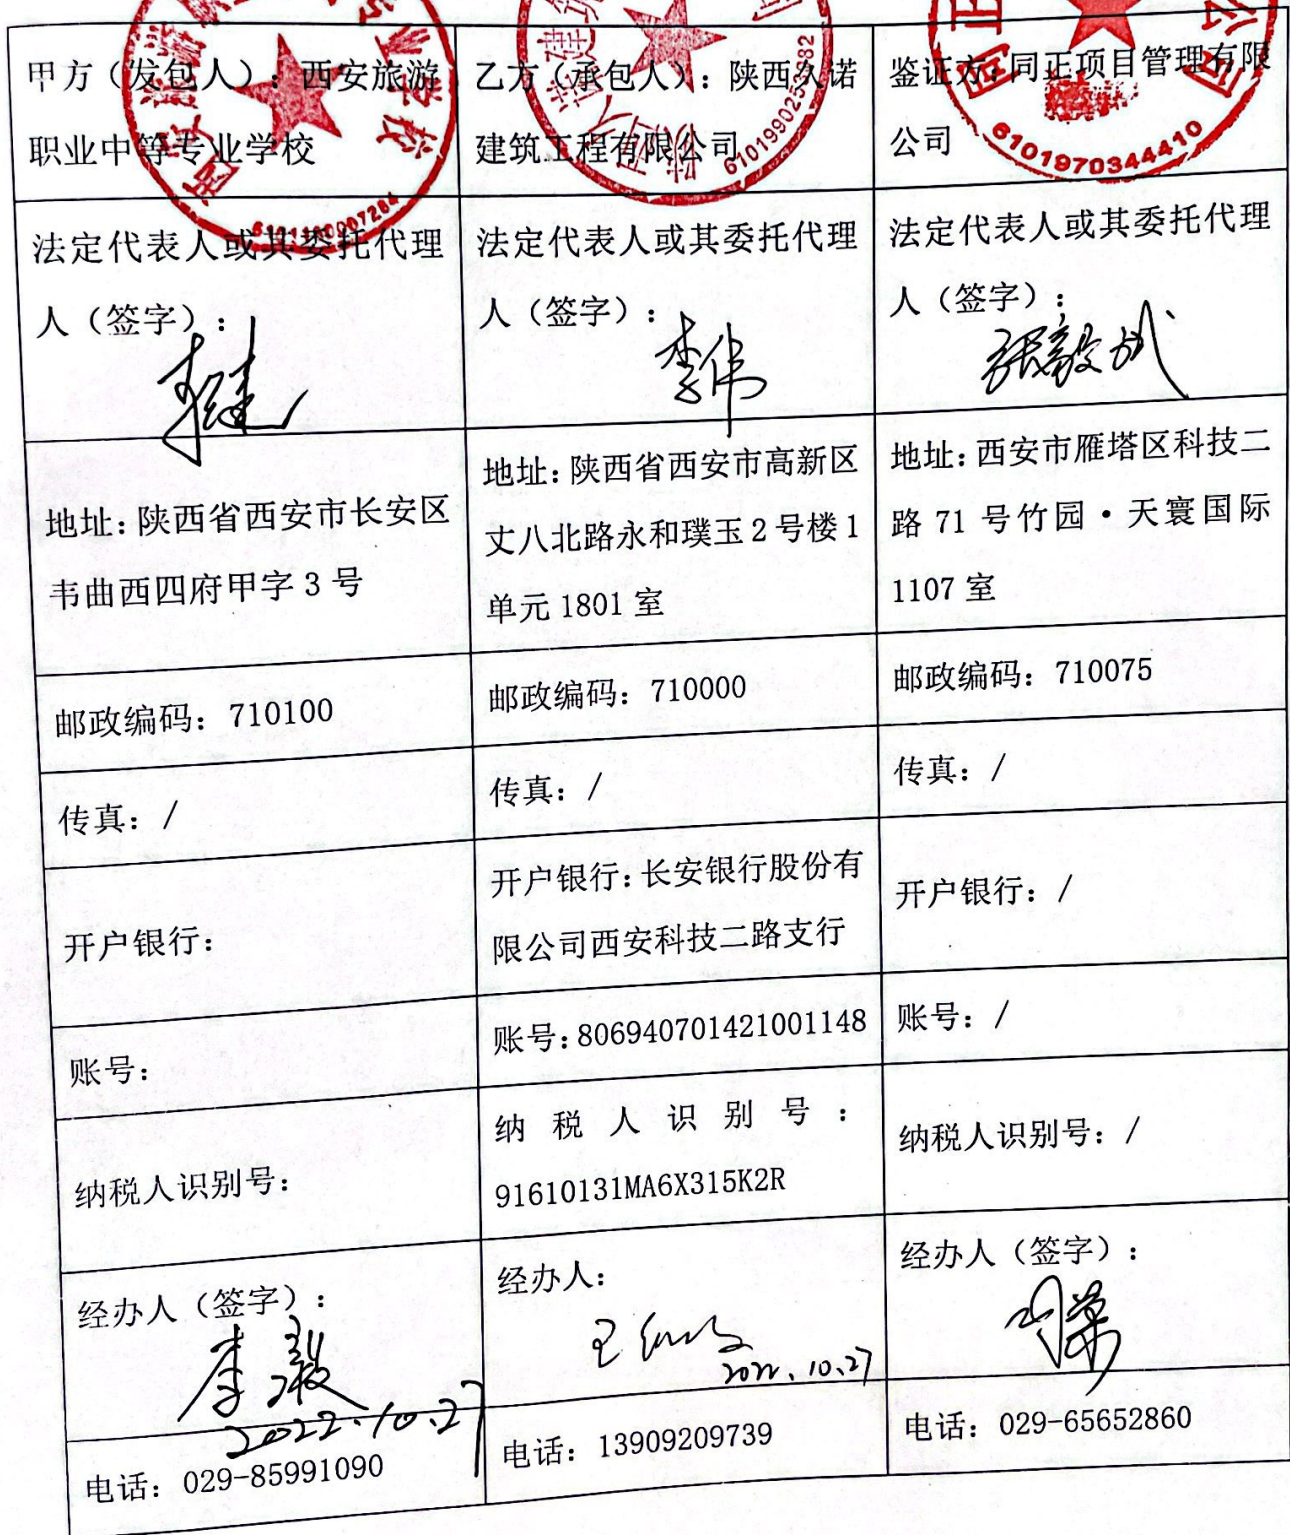 甲方（发包人）：西安旅游
职业中等专业学校
乙方（承包人）：陕西久诺
建筑工程有限公司
鉴证方：同正项目管理有限
公司
6101990253382
6101970344410
法定代表人或其委托代理
人（签字）：
法定代表人或其委托代理
人（签字）：
李伟
法定代表人或其委托代理
人（签字）：
张毅斌
地址：陕西省西安市长安区
韦曲西四府甲字 3 号
地址：陕西省西安市高新区
丈八北路永和璞玉 2 号楼 1
单元 1801 室
地址：西安市雁塔区科技二
路 71 号竹园·天寰国际
1107 室
邮政编码：710100
邮政编码：710000
邮政编码：710075
传真：/
传真：/
传真：/
开户银行：
开户银行：长安银行股份有
限公司西安科技二路支行
开户银行：/
账号：
账号：806940701421001148
账号：/
纳税人识别号：
纳税人识别号：
91610131MA6X315K2R
纳税人识别号：/
经办人（签字）：
李毅
2022.10.27
经办人：
2022.10.27
经办人（签字）：
电话：029-85991090
电话：13909209739
电话：029-65652860